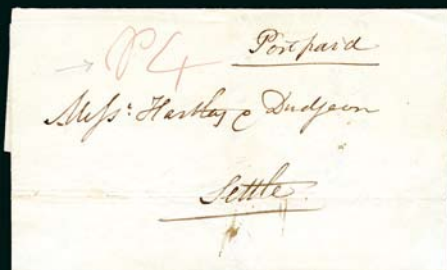 Post paid
P4
Messrs. Hartley & Dudgeon
Settle